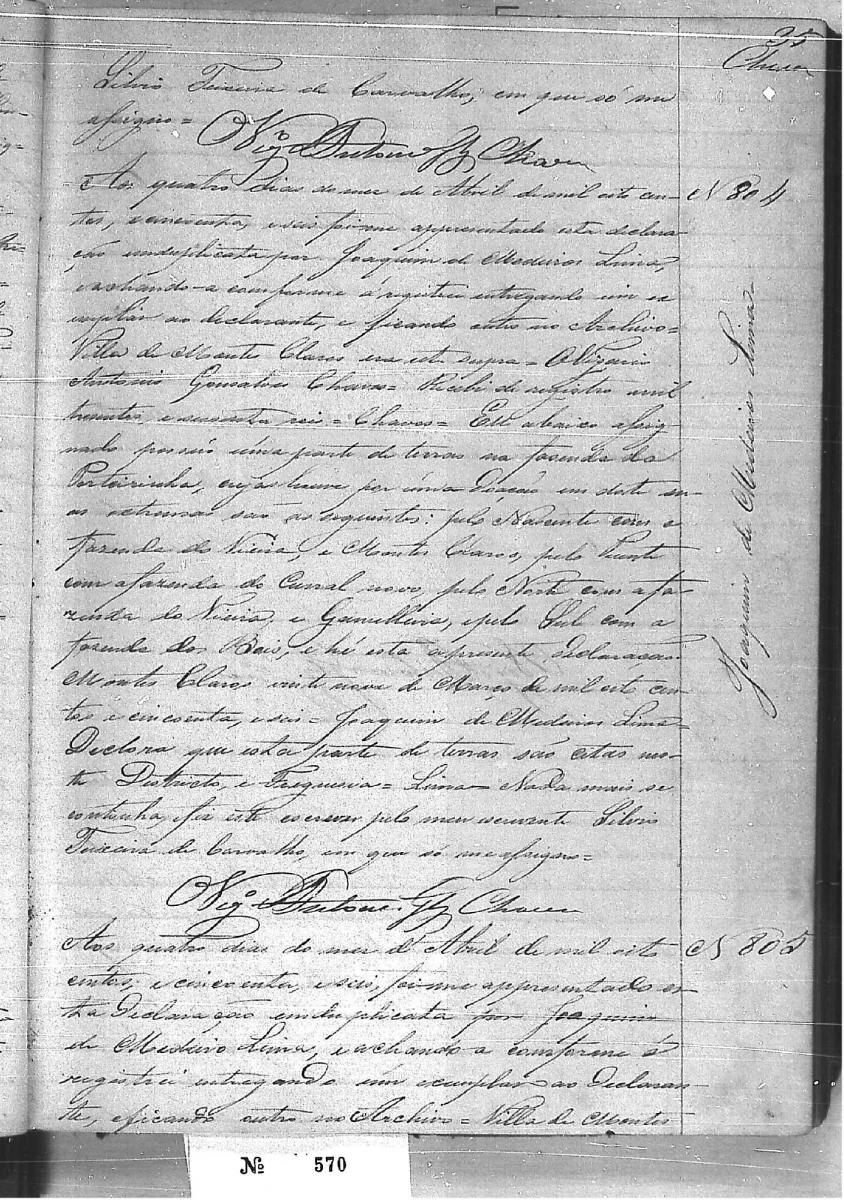 35
Chaves
Silvio Teixeira de Carvalho, em que só me
assigno =
Vigº Antonio Glz Chaves
Aos quatro dias do mez de Abril de mil oito cen- N 804
tos, e cincoenta, e seis foi me appresentado esta declara-
ção emduplicata por Joaquim de Medeiros Lima,
e achando-a comforme á registrei entregando um ex
emplar ao declarante, e ficando outro no Archivo =
Villa de Montes Claros era ut supra = O Vigario
Antonio Gonsalves Chaves = Recebi de registro mil
trezentos, e secenta reis = Chaves = Eu abaixo assig-
nado possuo uma parte de terras na fazenda da
Porteirinha, cujas houve por uma Doação em dote su-
as estremas são as seguintes: pelo Nascente com a
fazenda do Vieira, e Montes Claros, pelo Puente
com a fazenda do Curral novo, pelo Norte com a fa-
zenda do Vieira, e Gamelleira, e pelo Sul com a
fazenda dos Bois, e hé esta a presente declaração
Montes Claros vinte nove de Março de mil oito cen-
tos e cincoenta, e seis = Joaquim de Medeiros Lima =
Declara que esta parte de terras são citas nes-
te Districto, e Freguesia = Lima = Nada mais se
continha, fiz este escrever pelo meu escrevente Silvio
Teixeira de Carvalho, em que só me assigno =
Joaquim de Medeiros Lima
Vigº Antonio Glz Chaves
Aos quatro dias do mez de Abril de mil oito N 805
centos, e cincoenta, e seis, foi me appresentado es-
ta Declaração emduplicata por Joaquim
de Medeiro Lima, e achando a comforme á
registrei entregando um exemplar ao Declaran-
te, e ficando outro no Archivo = Villa de Montes
Nº 570